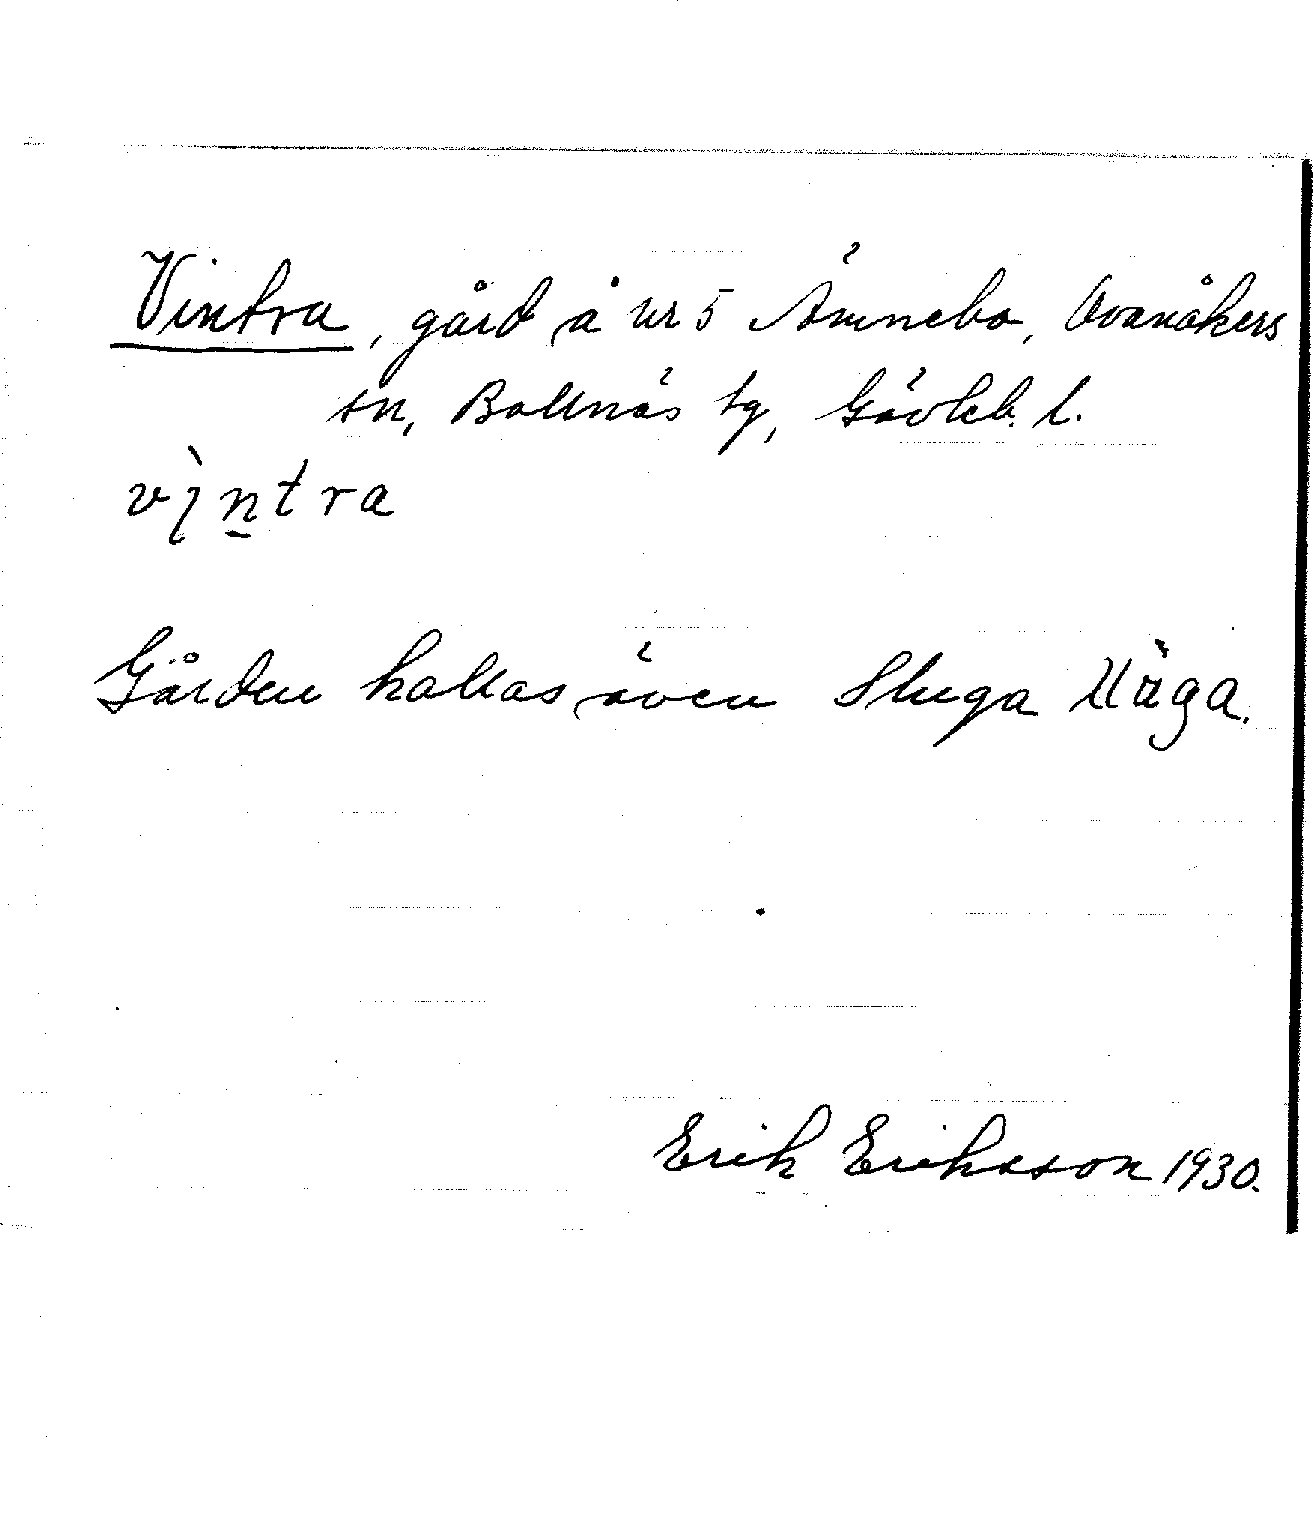 Vintra, gård å nr 5 Ämnebo, Ovanåkers
sn, Bollnäs tg, Gävleb. l.
vìntra
Gården kallas även Sluga
Erik Eriksson 1930.